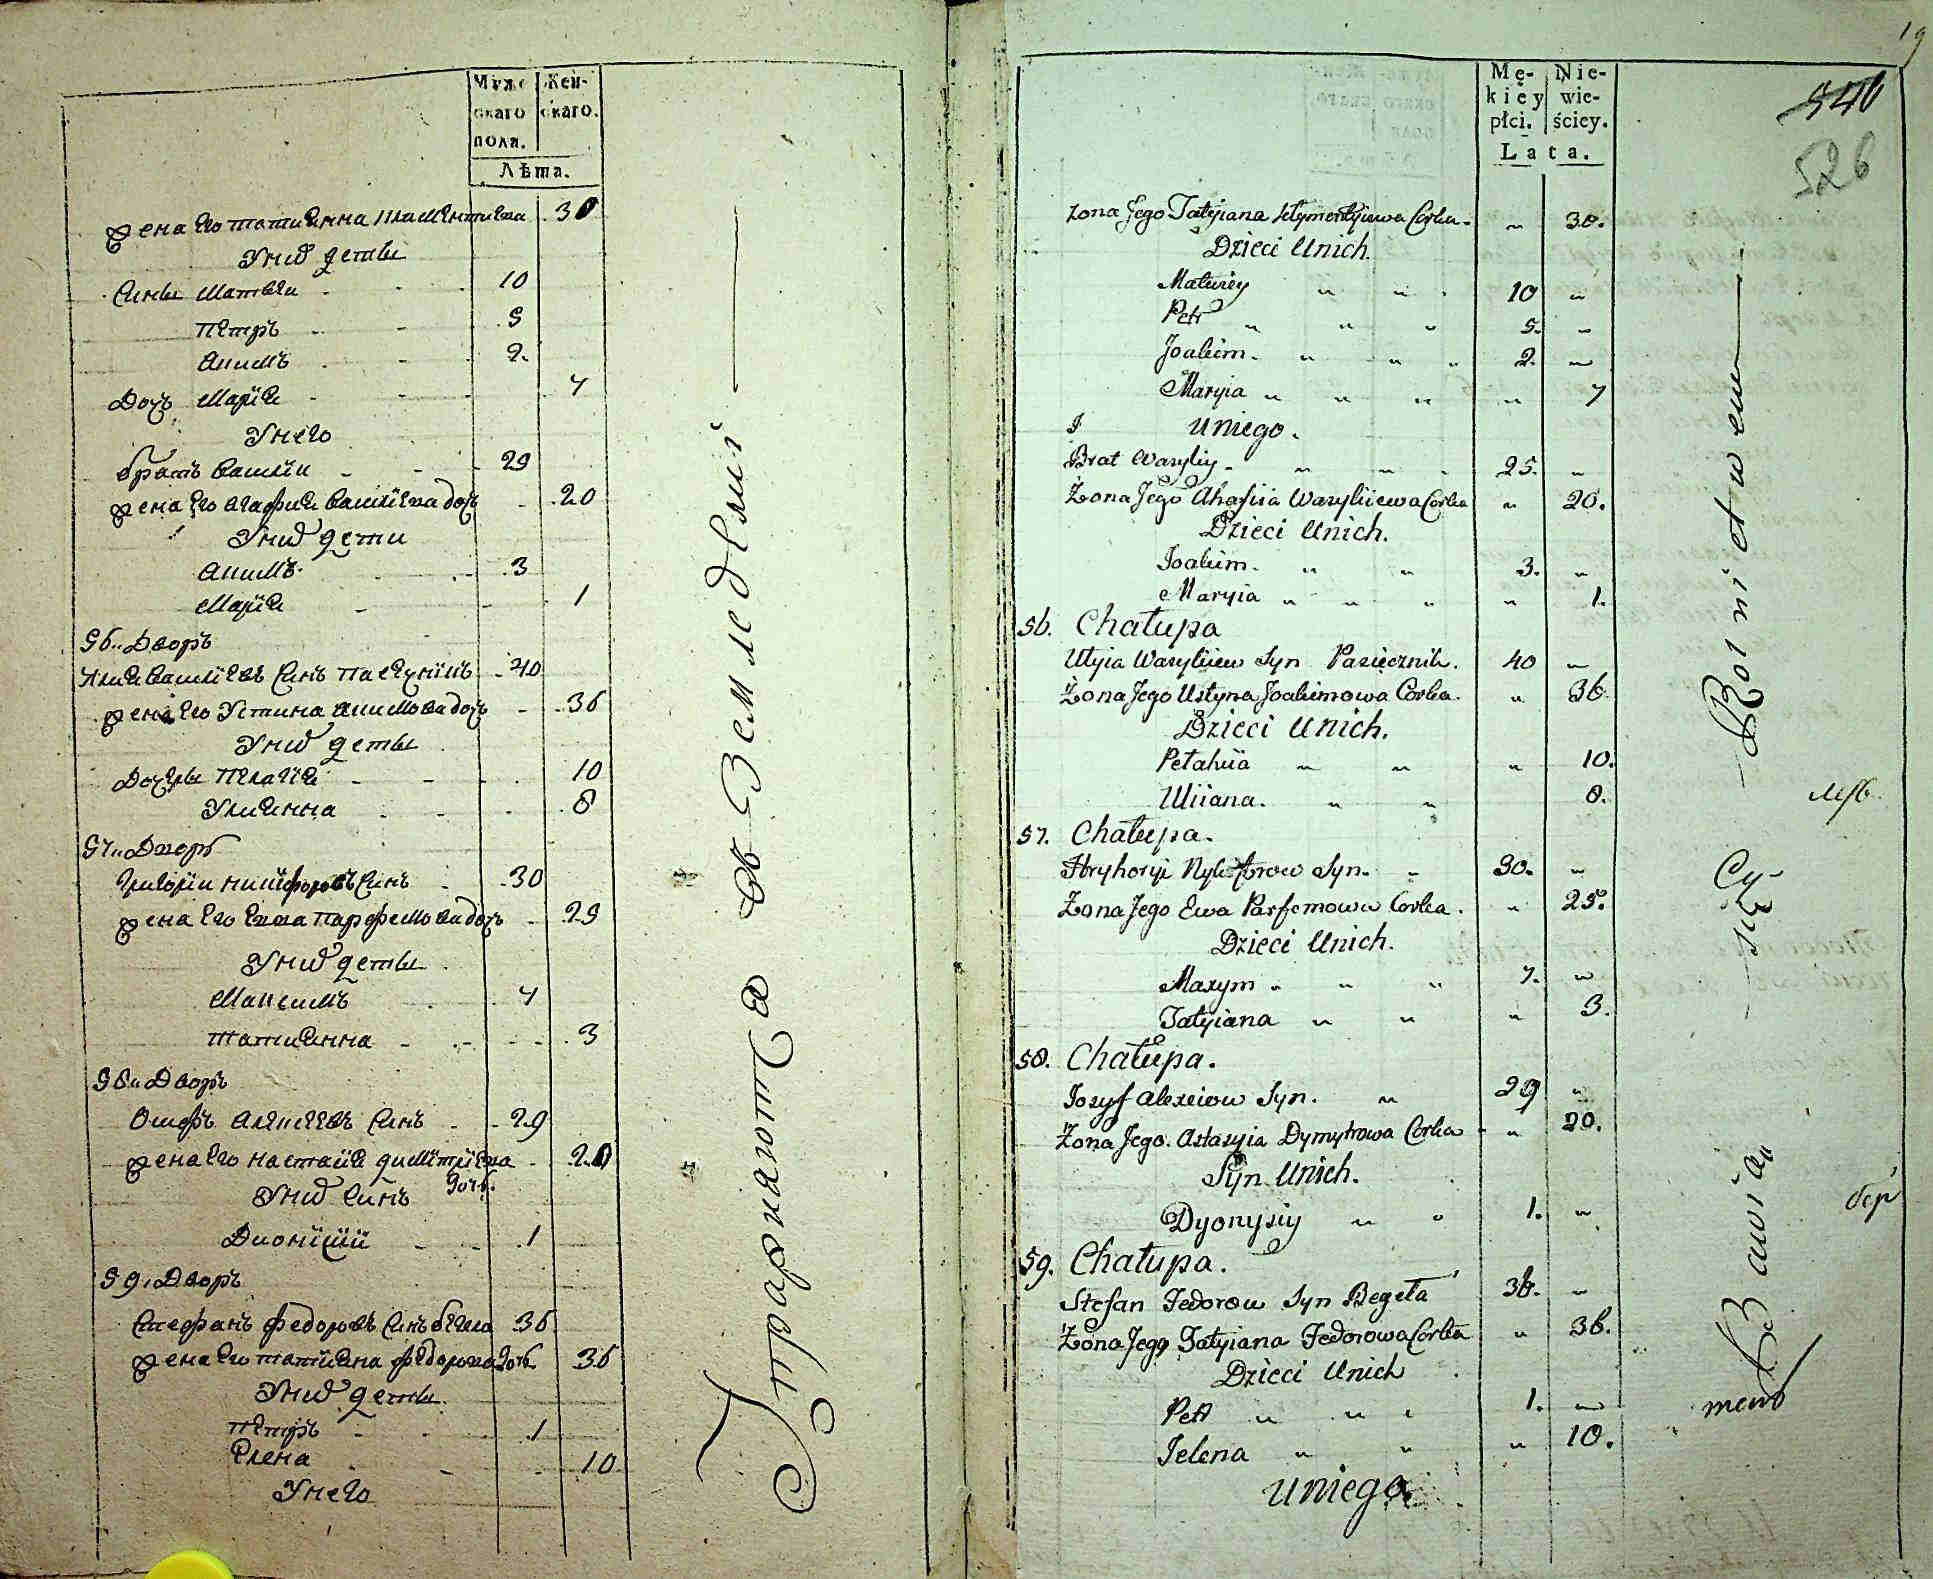 Муже Жен-
скаго скаго.
поля.
Лѣта.
жена Его татиАнна климентиева 30
Унихъ деты
Сины Матвеи 10
Петръ 5
Акимъ 2.
Дочъ Марїя 7
Унего
братъ василїи 25
жена Его Агафия василїева дочъ 20
Унихъ дети
Акимъ 3
Марїя 1
56. Дворъ
Илия васил�иевъ синъ пасечникъ 40
жена Его Устина Акимова дочъ 36
Унихъ деты
Дочеры Пелагїя 10
Улиянна 8
57. Дворъ
Григорїи никифоровъ синъ 30
жена Его Евва Парфемова дочъ 25
Унихъ деты
Максимъ 7
татиянна 3
58. Дворъ
Осифъ Алексеевъ синъ 29
жена Его настасїя димїтрїева дочъ. 20
Унихъ синъ
Дионїсїй 1
59. Дворъ
Стефанъ федоровъ синъ бегела 36
жена Его татїяна федорова дочъ 36
Унихъ деты
петръ 1
Елена 10
Унего
Упражняютца въ Земледелиі
19
540
526
Mę- Nie-
kiey wie-
płci. ściey.
Lata.
Zona Jego Tatyiana Klymentyiewa Corka. " 30.
Dzieci Unich.
Matwiey " " 10 "
Petr " " " 5. "
Joakim. " " " 2. "
Maryia " " " " 7
I uniego.
Brat Wasyliy " " 25. "
Żona Jego Ahafiia Wasyliiewa Corka " 20.
Dzieci Unich.
Joakim. " " 3. "
Maryia " " " " 1.
56. Chałupa
Illyia Wasyliiew Syn Pasięcznik. 40 "
Żona Jego Ustyna Joakimowa Corka. " 36
Dzieci Unich.
Pełahiia " " " 10.
Uliiana. " " 8.
57. Chałupa.
Hryhoryi Nykiforow Syn. " 30. "
Żona Jego Ewa Parfemowa Corka. " 25.
Dzieci Unich.
Maxym " " " 7. "
Tatyiana " " " 3.
58. Chałupa.
Iozyf Alexeiew Syn. " 29 "
Żona Jego Astasyia Dymytrowa Corka " 20.
Syn Unich.
Dyonysiy " " 1. "
59. Chałupa.
Stefan Fedorow Syn Begeła 36. "
Żona Jego Tatyiana Fedorowa Corka " 36.
Dzieci Unich
Petr " " " 1. "
Jelena " " " 10.
Uniego.
Rolnictwem
się
Bawią